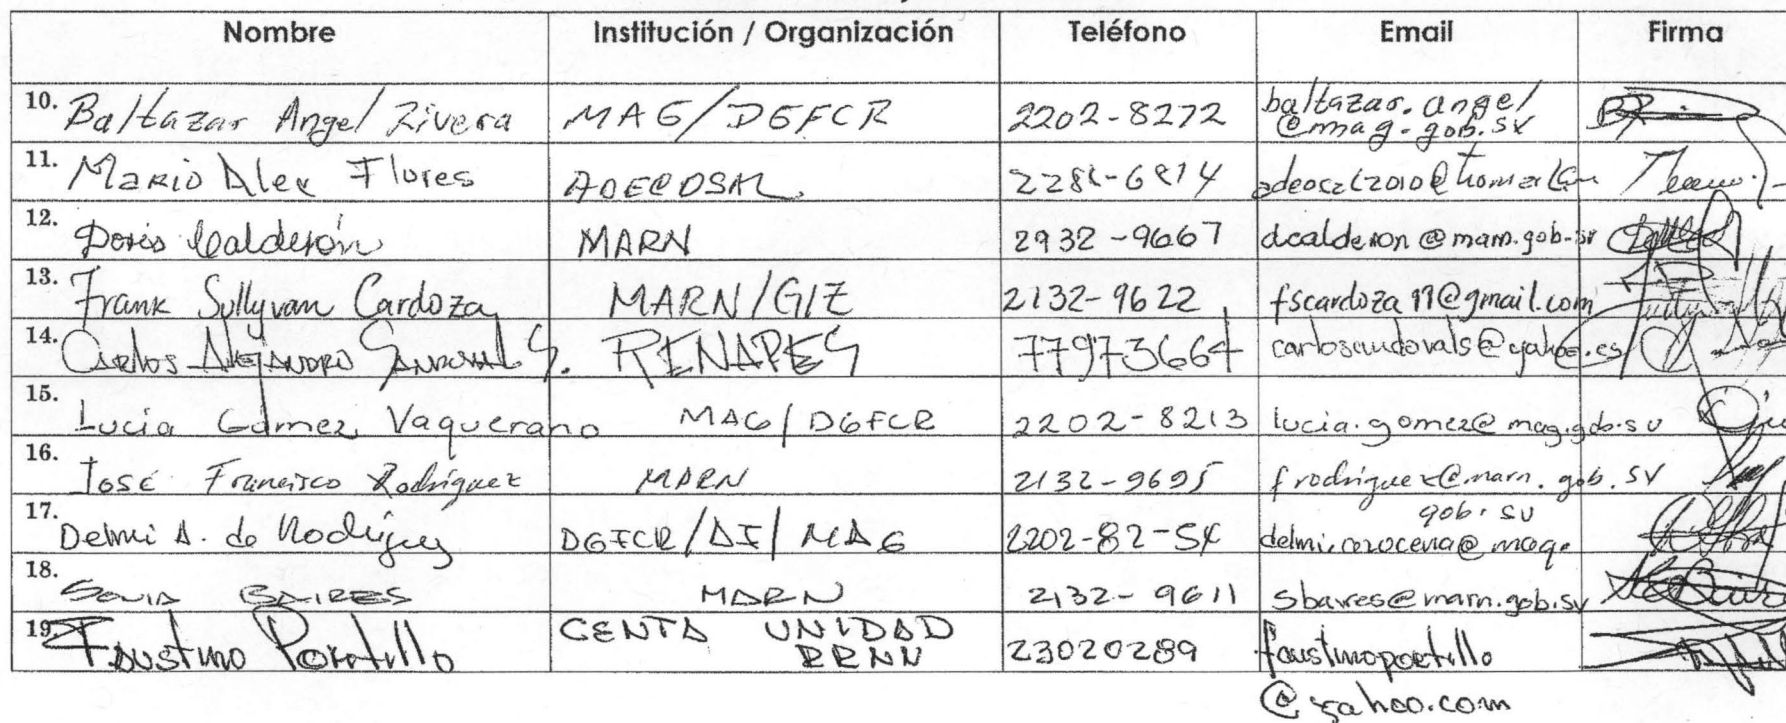 Nombre Institución / Organización Teléfono Email Firma
10. Baltazar Angel Rivera MAG/DGFCR 2202-8272 baltazar.angel
@mag.gob.sv
11. Mario Alex Flores
12. Doris Calderón MARN 2932-9667 dcalderon@marn.gob.sv
13. Frank Sullyvan Cardoza MARN/GIZ 2132-9622 fscardoza17@gmail.com
14. Carlos Alejandro Sandoval S. RENAPES 77973664 carlosandovals@yahoo.es
15. Lucia Gómez Vaquerano MAG/DGFCR 2202-8213 lucia.gomez@mag.gob.sv
16. José Francisco Rodríguez MARN 2132-9695 frodriguez@marn.gob.sv
17. Delmi A. de Rodríguez DGFCR/AI/MAG 2202-82-54
gob.sv
18. Sonia Baires MARN 2132-9611 sbaires@marn.gob.sv
19. Faustino Portillo CENTA UNIDAD
RRNN 23020289 faustinoportillo
@yahoo.com